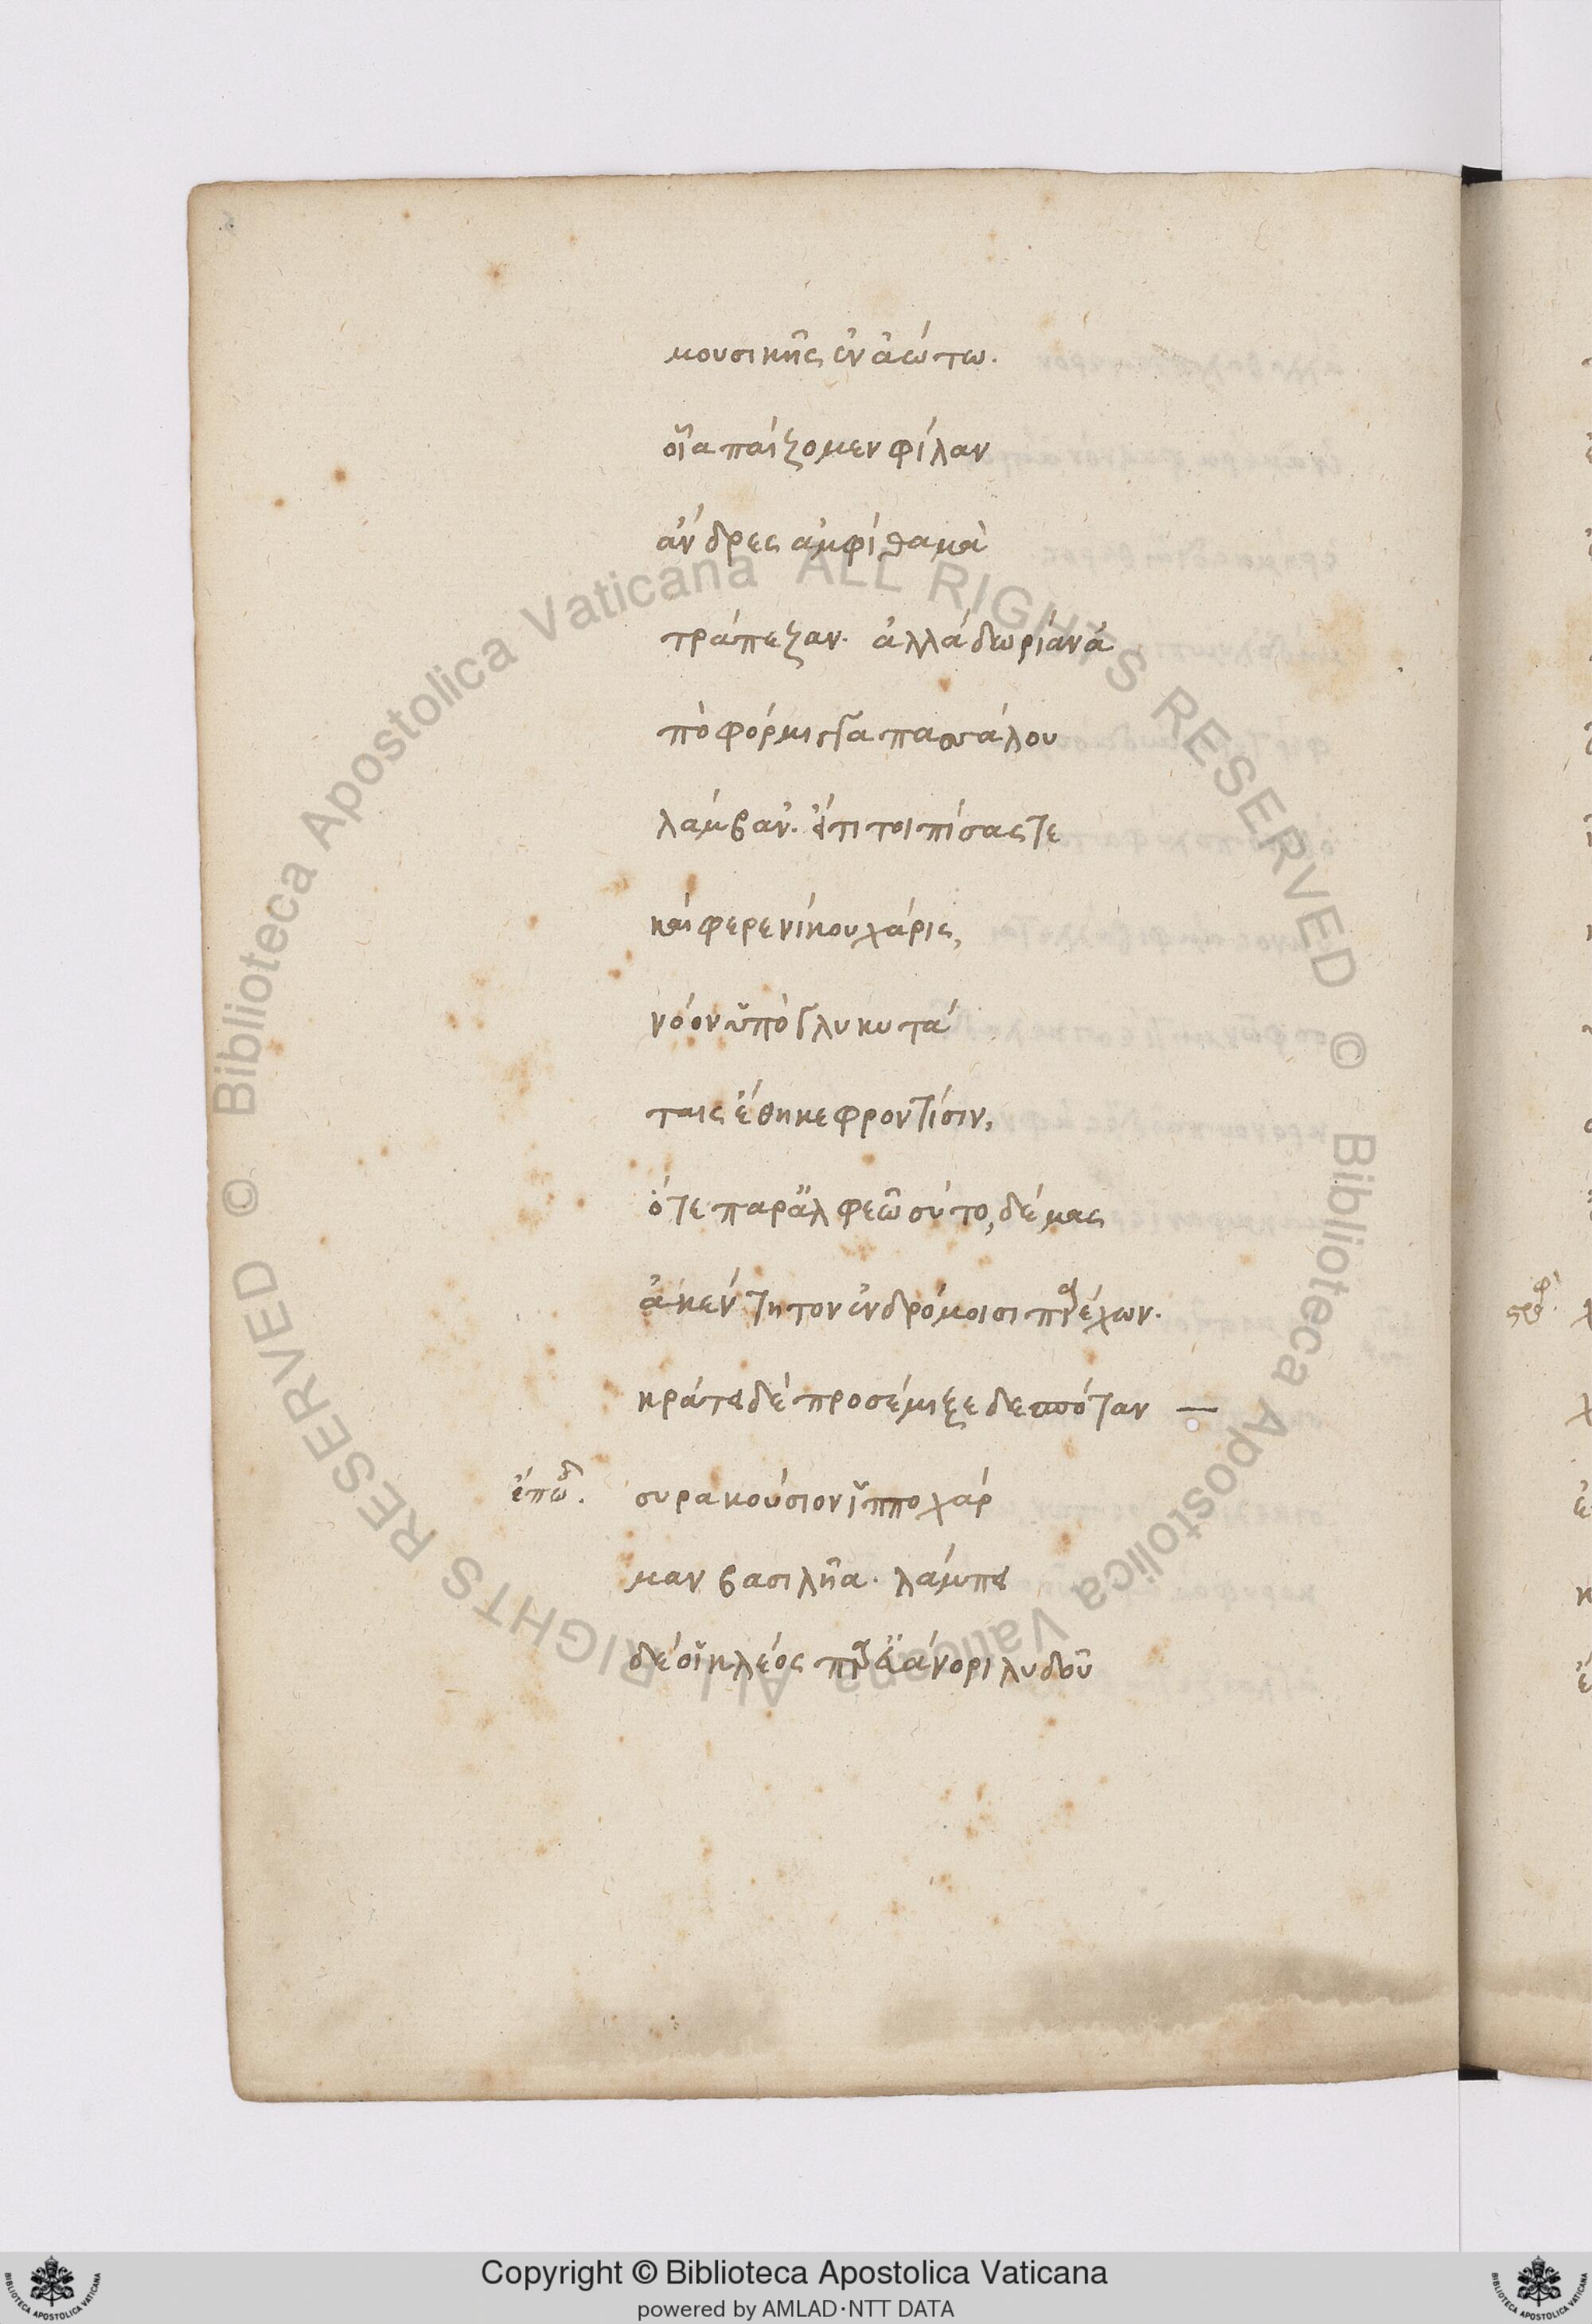 μουσικῆς ἐν ἀώτω.
οἷα παίζομεν φίλαν
ἄνδρες ἀμφὶ θαμὰ
τράπεζαν. ἀλλὰ δωρίαν ἀ
πὸ φόρμιγγα πασσάλου
λάμβαν'. ὅτι τοι πίσας τε
καὶ φερενίκου χάρις,
νόον ὑπὸ γλυκυτά
ταις ἔθηκε φροντίσιν,
ὅτε παρ' ἀλφεῶ σύτο, δέμας
ἀκέντητον ἐν δρόμοισι πρέχων.
κράτει δὲ προσέμιξε δεσπόταν —
ἐπῳδ. συρακούσιον ἱπποχάρ
μαν βασιλῆα. λάμπει
δέ οἱ κλέος πρ' εὐάνορι λυδοῦ
Biblioteca Apostolica Vaticana ALL RIGHTS RESERVED ©
Biblioteca Apostolica Vaticana ALL RIGHTS RESERVED ©
Copyright © Biblioteca Apostolica Vaticana
powered by AMLAD·NTT DATA